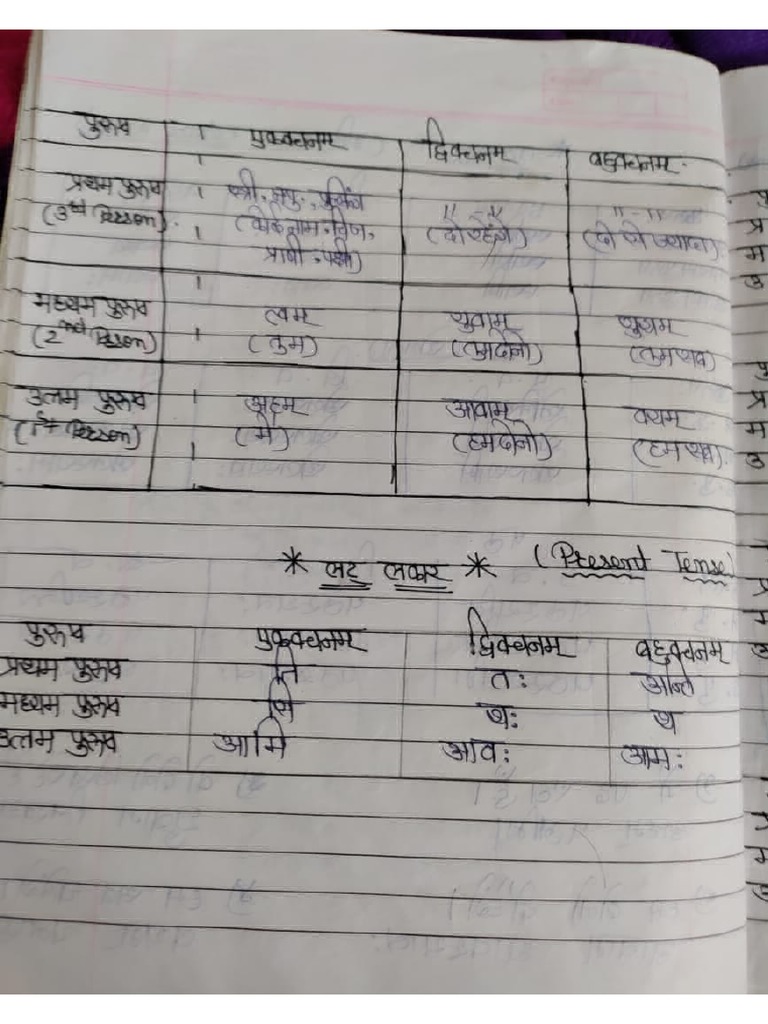 पुरुष एकवचनम् द्विवचनम् बहुवचनम्
प्रथम पुरुष स्त्री. नपु. पुल्लिंग " - " " - "
(3rd Person). प्राणी
मध्यम पुरुष त्वम युवाम् युयम
(2nd Person) (तुम) (तुम दोनो) (तुम सब)
उत्तम पुरुष अहम आवाम् वयम
(1st Person) (मैं) (हम दोनो) (हम सब).
* लट् लकार * (Present Tense)
पुरुष एकवचनम् द्विवचनम् बहुवचनम्
प्रथम पुरुष ति तः अन्ति
मध्यम पुरुष सि थः थ
उत्तम पुरुष आमि आवः आमः